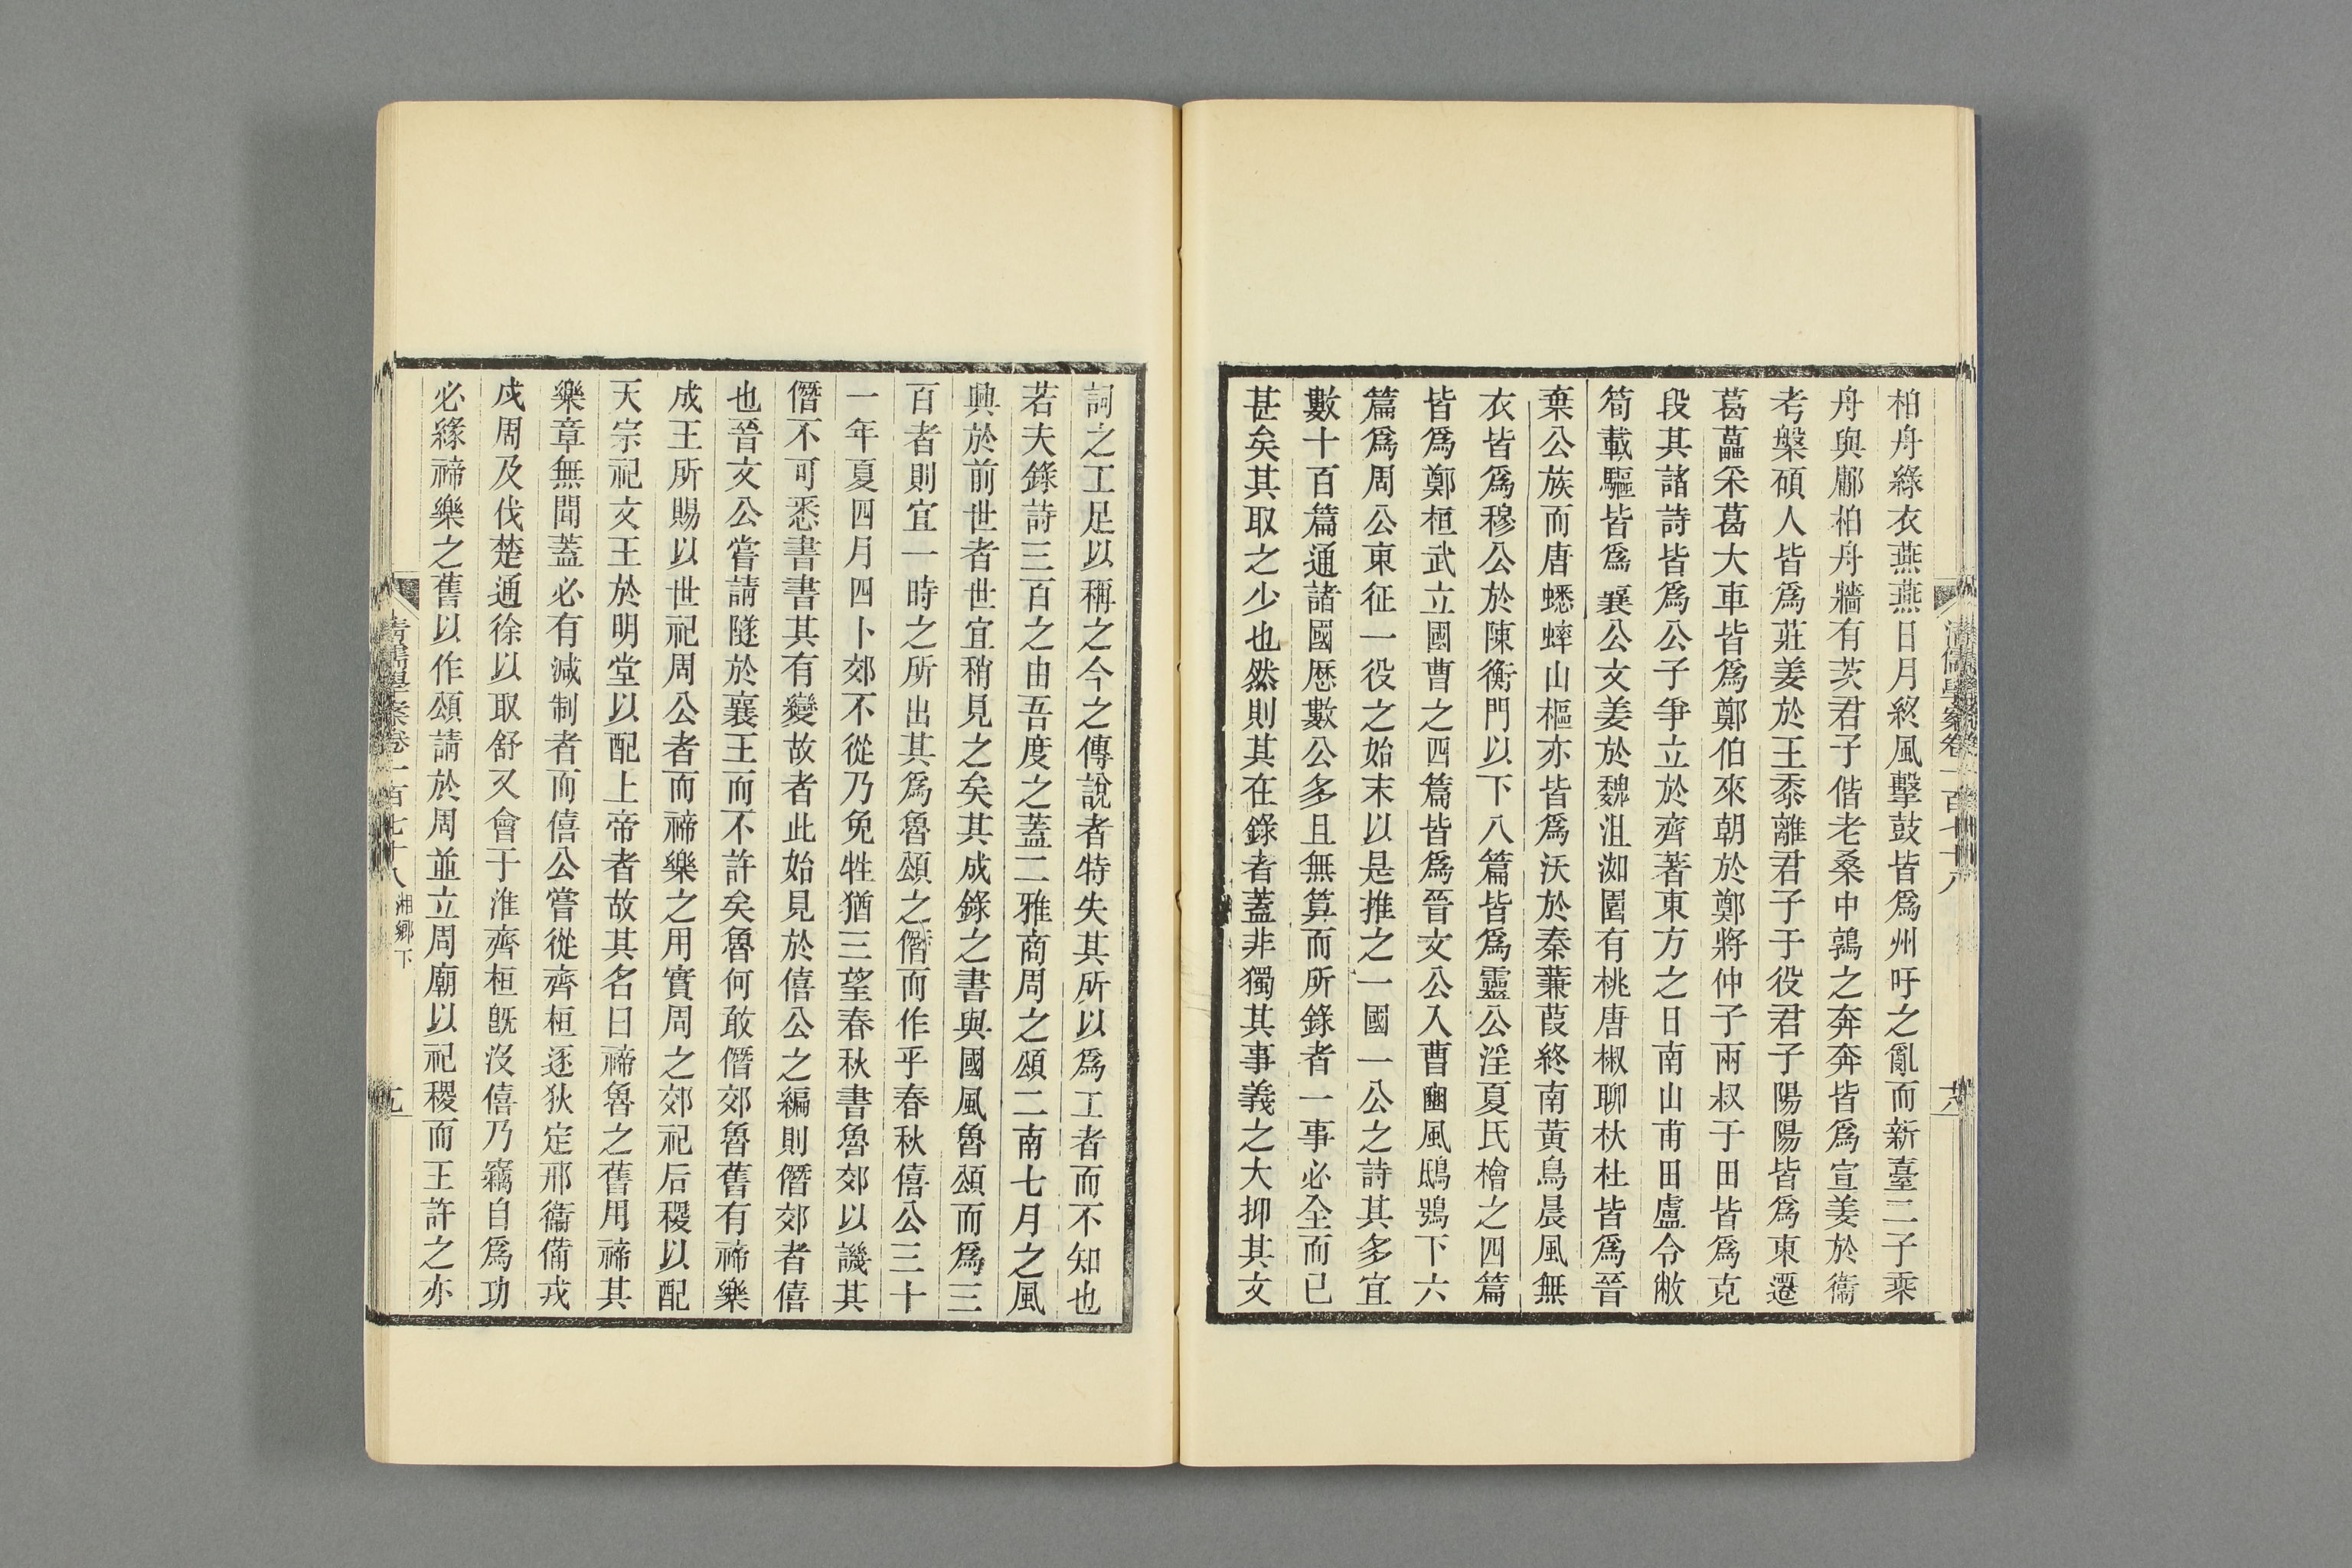 柏舟綠衣燕燕日月終風擊鼓皆爲州吁之亂而新臺二子乘
舟與鄘柏舟牆有茨君子偕老桑中鶉之奔奔皆爲宣姜於衞
考槃碩人皆爲莊姜於王黍離君子于役君子陽陽皆爲東遷
葛藟采葛大車皆爲鄭伯來朝於鄭將仲子兩叔于田皆爲克
段其諸詩皆爲公子爭立於齊著東方之日南山甫田盧令敝
笱載驅皆爲襄公文姜於魏沮洳園有桃唐椒聊杕杜皆爲晉
棄公族而唐蟋蟀山樞亦皆爲沃於秦蒹葭終南黃鳥晨風無
衣皆爲穆公於陳衡門以下八篇皆爲靈公淫夏氏檜之四篇
皆爲鄭桓武立國曹之四篇皆爲晉文公入曹豳風鴟鴞下六
篇爲周公東征一役之始末以是推之一國一公之詩其多宜
數十百篇通諸國歷數公多且無算而所錄者一事必全而已
甚矣其取之少也然則其在錄者蓋非獨其事義之大抑其文
清儒學案卷一百七十八
詞之工足以稱之今之傳說者特失其所以爲工者而不知也
若夫錄詩三百之由吾度之蓋二雅商周之頌二南七月之風
興於前世者世宜稍見之矣其成錄之書與國風魯頌而爲三
百者則宜一時之所出其爲魯頌之僭而作乎春秋僖公三十
一年夏四月四卜郊不從乃免牲猶三望春秋書魯郊以譏其
僭不可悉書書其有變故者此始見於僖公之編則僭郊者僖
也晉文公嘗請隧於襄王而不許矣魯何敢僭郊魯舊有禘樂
成王所賜以世祀周公者而禘樂之用實周之郊祀后稷以配
天宗祀文王於明堂以配上帝者故其名曰禘魯之舊用禘其
樂章無聞蓋必有減制者而僖公嘗從齊桓逐狄定邢衞備戎
戍周及伐楚通徐以取舒又會于淮齊桓旣沒僖乃竊自爲功
必緣禘樂之舊以作頌請於周並立周廟以祀稷而王許之亦
清儒學案卷一百七十八 湘鄉下